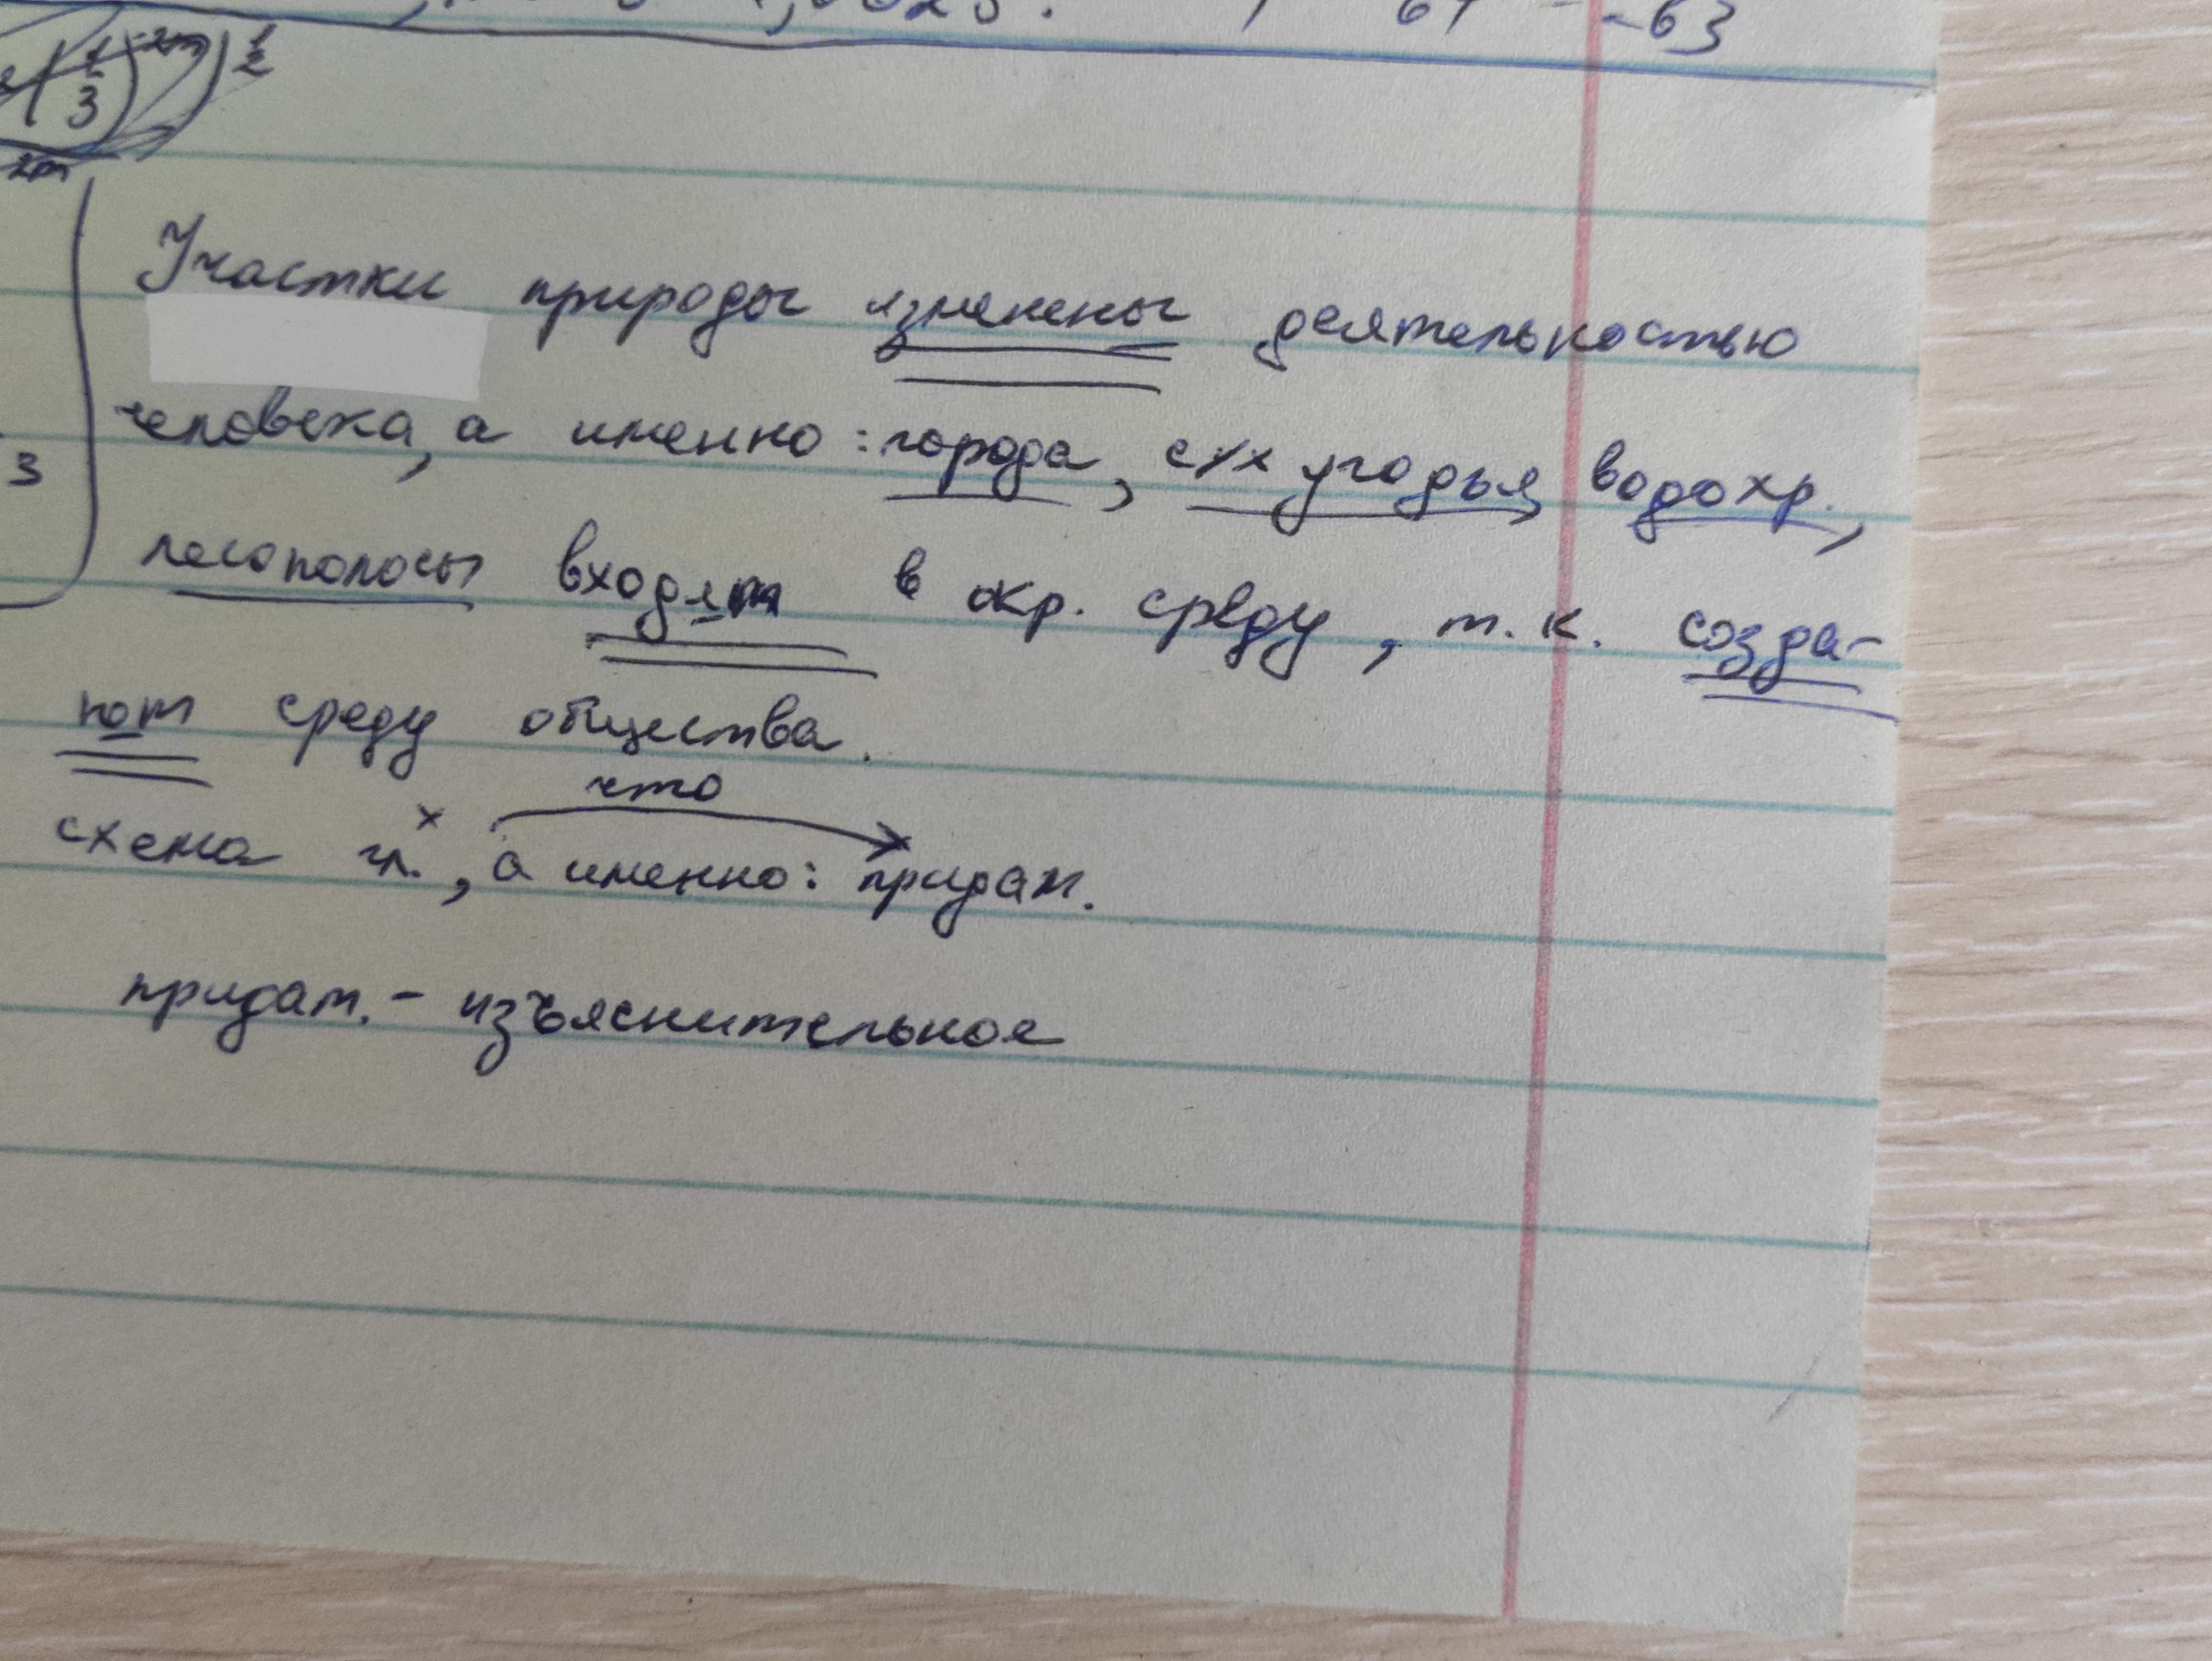 63
1/2
3
2m
Участки природы изменены деятельностью
3
человека, а именно: города, с/х угодья, водохр.,
лесополосы входят в окр. среду, т.к. созда-
ют среду общества.
что
х
схема гл., а именно: придат.
придат. - изъяснительное